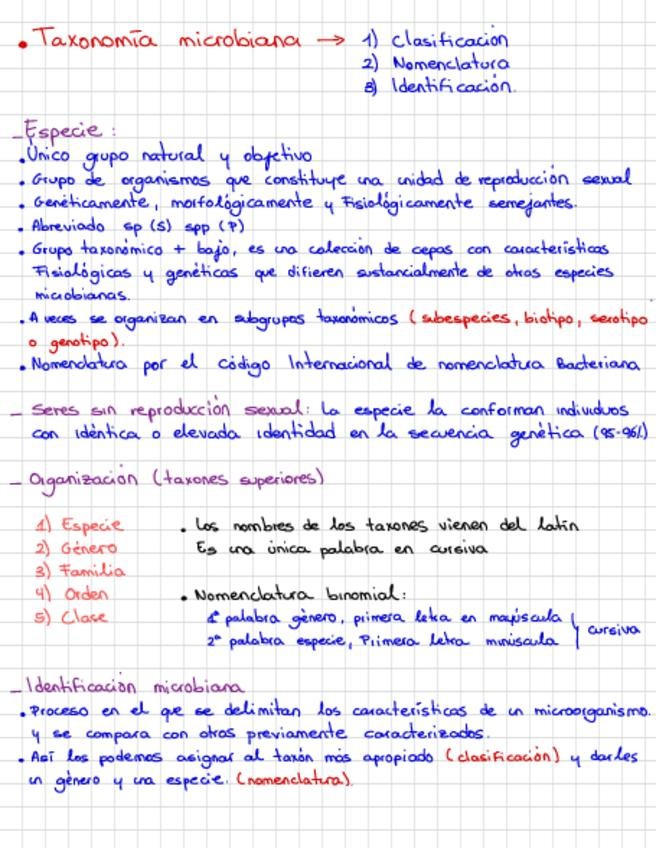 • Taxonomía microbiana → 1) Clasificación
2) Nomenclatura
3) Identificación.
- Especie:
• Único grupo natural y objetivo
• Grupo de organismos que constituye una unidad de reproducción sexual
• Genéticamente, morfológicamente y Fisiológicamente semejantes.
• Abreviado sp (S) spp (P)
• Grupo taxonómico + bajo, es una colección de cepas con características
Fisiológicas y genéticas que difieren sustancialmente de otras especies
microbianas.
• A veces se organizan en subgrupos taxonómicos (subespecies, biotipo, serotipo
o genotipo).
• Nomenclatura por el código Internacional de nomenclatura Bacteriana
- Seres sin reproducción sexual: La especie la conforman individuos
con idéntica o elevada identidad en la secuencia genética (95-96%)
- Organización (taxones superiores)
1) Especie
2) Género
3) Familia
4) Orden
5) Clase
• Los nombres de los taxones vienen del latín
Es una única palabra en cursiva
• Nomenclatura binomial:
1ª palabra género, primera letra en mayúscula
2ª palabra especie, Primera letra minúscula
cursiva
- Identificación microbiana
• Proceso en el que se delimitan los características de un microorganismo.
y se compara con otros previamente caracterizados.
• Así los podemos asignar al taxón más apropiado (clasificación) y darles
un género y una especie. (nomenclatura).